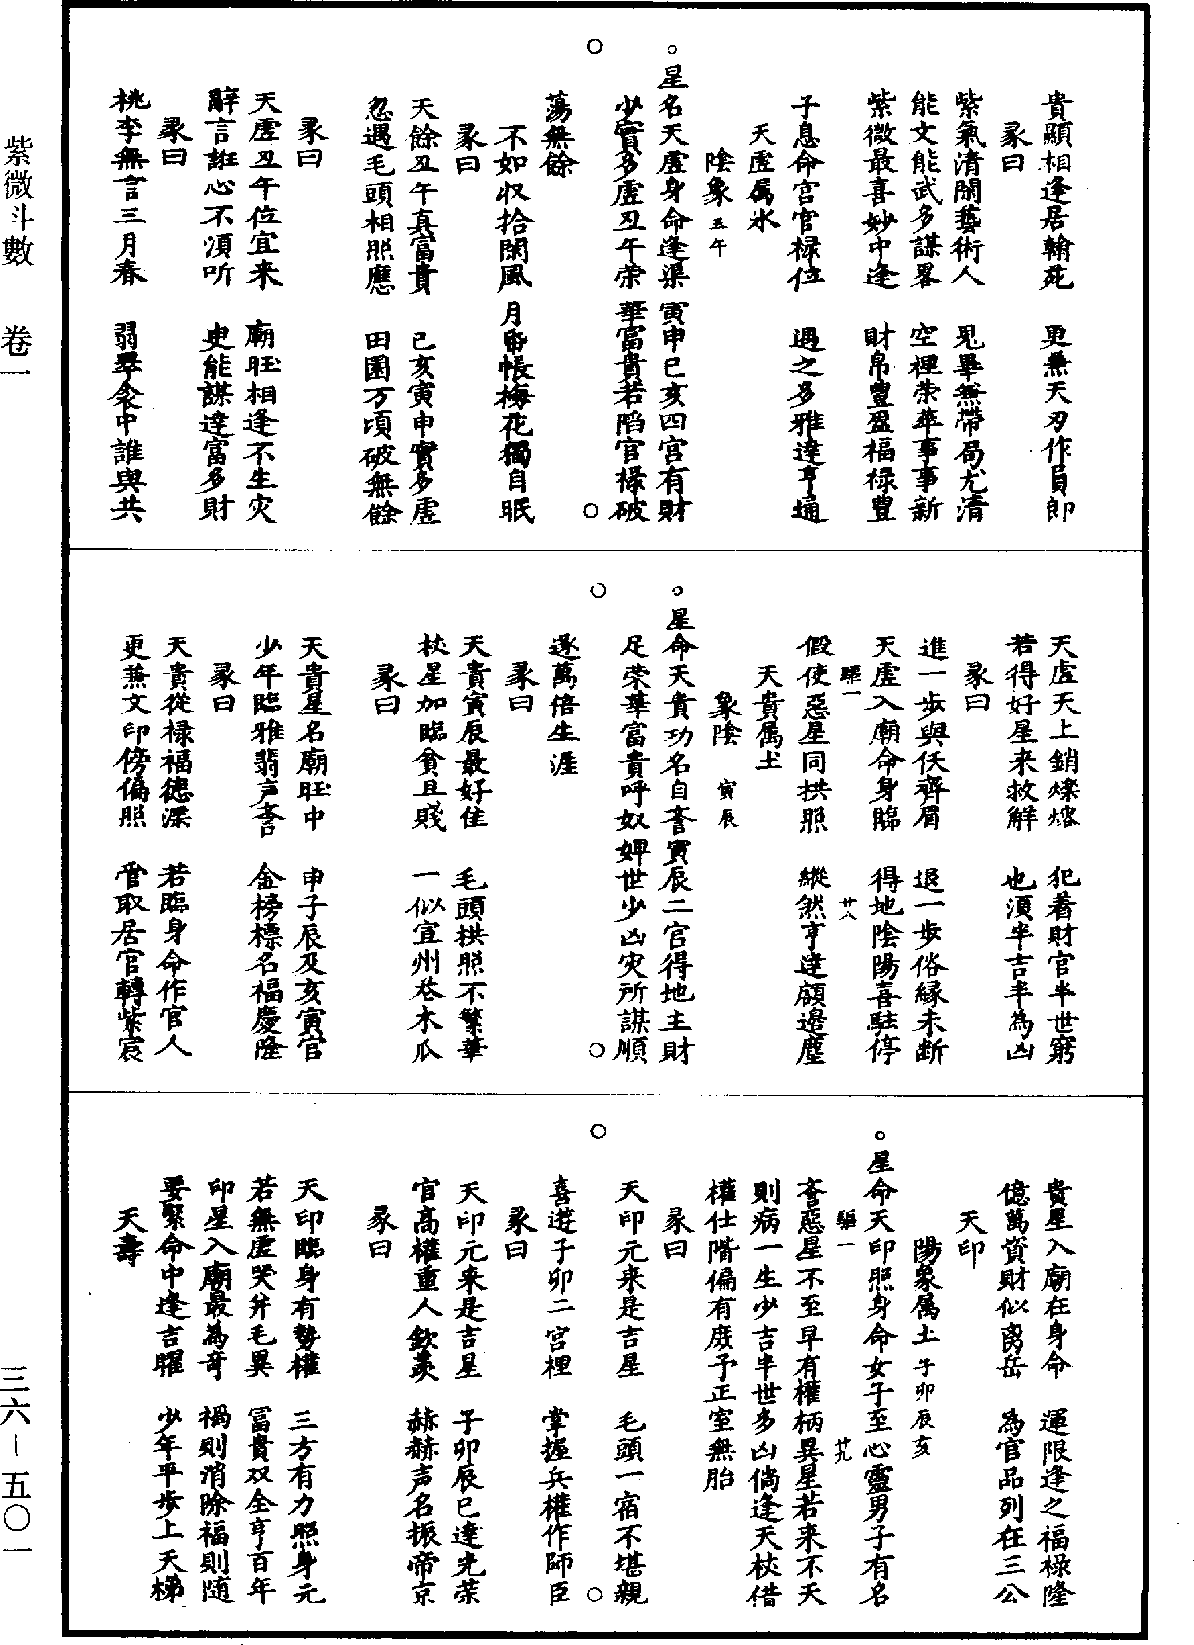 貴顯相逢居翰苑 更兼天刃作員郎
彖曰
紫氣清閑藝術人 鬼畢無帶局尤清
能文能武多謀畧 空裡荣華事事新
紫微最喜妙中逢 財帛豐盈福禄豊
子息命宫官禄位 遇之多雅達亨通
天虛属水
陰象 丑午
。星名天虛身命逢渠寅申巳亥四宫有財
少實多虛丑午荣華富貴若陷官禄破
○ ○
蕩無餘
不如収拾閑風月 帋帳梅花獨自眠
彖曰
天餘丑午真富貴 已亥寅申實多虛
忽遇毛頭相照應 田園万頃破無餘
彖曰
天虛丑午位宜来 廟旺相逢不生灾
辭言誑心不湏听 史能謀達富多財
彖曰
桃李無言三月春 翡翠衾中誰與共
天虛天上銷燦熔 犯着財官半世窮
若得好星来救解 也湏半吉半為凶
彖曰
進一步與仸齊眉 退一步俗緣未断
天虛入廟命身臨 得地陰陽喜駐停
驅一 廿八
假使惡星同拱照 縱然亨達頋邉塵
天貴属土
象陰 寅辰
。星命天貴功名自奢寅辰二宫得地主財
足荣華富貴呼奴婢世少凶灾所謀順
○ ○
遂萬倍生涯
彖曰
天貴寅辰最好佳 毛頭拱照不繁華
杖星加臨貧且賤 一似宜州巷木瓜
彖曰
天貴星名廟旺中 申子辰及亥寅宫
少年臨雅翡声奢 金榜標名福慶隆
彖曰
天貴從禄福德深 若臨身命作官人
更兼文印傍偏照 管取居官轉紫宸
貴星入廟在身命 運限逢之福禄隆
億萬資財似喬岳 為官品列在三公
天印
陽象属土 子卯辰亥
。星命天印照身命女子至心靈男子有名
驅一 廿九
奢惡星不至早有權柄異星若来不夭
則病一生少吉半世多凶倘逢天杖借
權仕階偏有庶子正室無胎
彖曰
天印元来是吉星 毛頭一宿不堪親
○ ○
喜遊子卯二宫裡 掌握兵權作師臣
彖曰
天印元来是吉星 子卯辰巳達光荣
官高權重人欽羡 赫赫声名振帝京
彖曰
天印臨身有勢權 三方有力照身元
若無虛哭并毛異 冨貴双全亨百年
印星入廟最為竒 禍則消除福則随
要緊命中逢吉曜 少年平步上天梯
天壽
紫微斗數 卷一
三六－五〇一